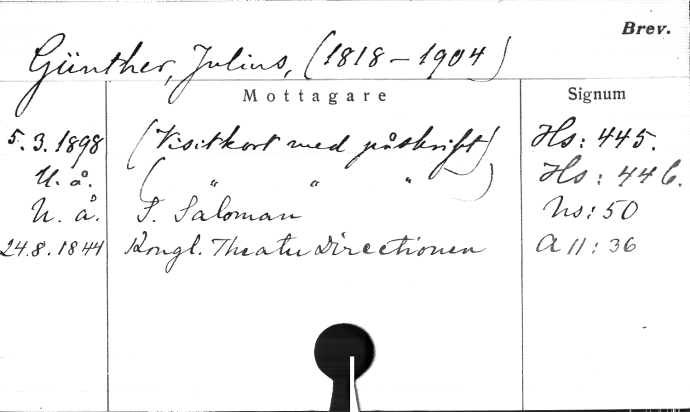 Brev.
Günther, Julius, (1818-1904)
Mottagare Signum
5.3.1898 (Visitkort med påskrift) Hs: 445.
U. å. ( " " " ) Hs: 446.
U. å. S. Saloman Ns: 50
24.8.1844 Kongl. Theater Directionen A II: 36